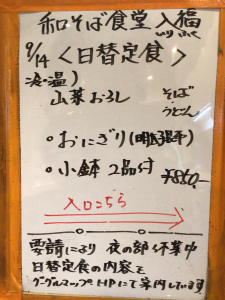 和そば食堂 入福
いり ふく
9/14 <日替定食>
冷・温)
山菜おろし そば
うどん
・おにぎり(明太子)
・小鉢 2品付 ¥850-
入口こちら
要請により 夜の部 休業中
日替定食の内容を
グーグルマップ HPにて案内しています